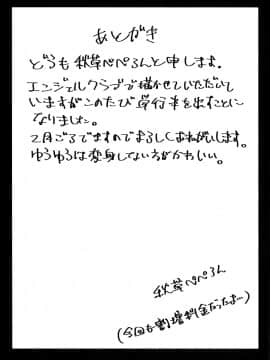 あとがき
どうも 秋草ぺぺろんと申します。
エンジェルクラブで描かせていただいて
いますがこのたび単行本を出すことに
なりました。
2月ごろですのでよろしくお願いします。
ゆるゆるは変身してない方がかわいい。
秋草ぺぺろん
(今回も割増料金だったよ…)